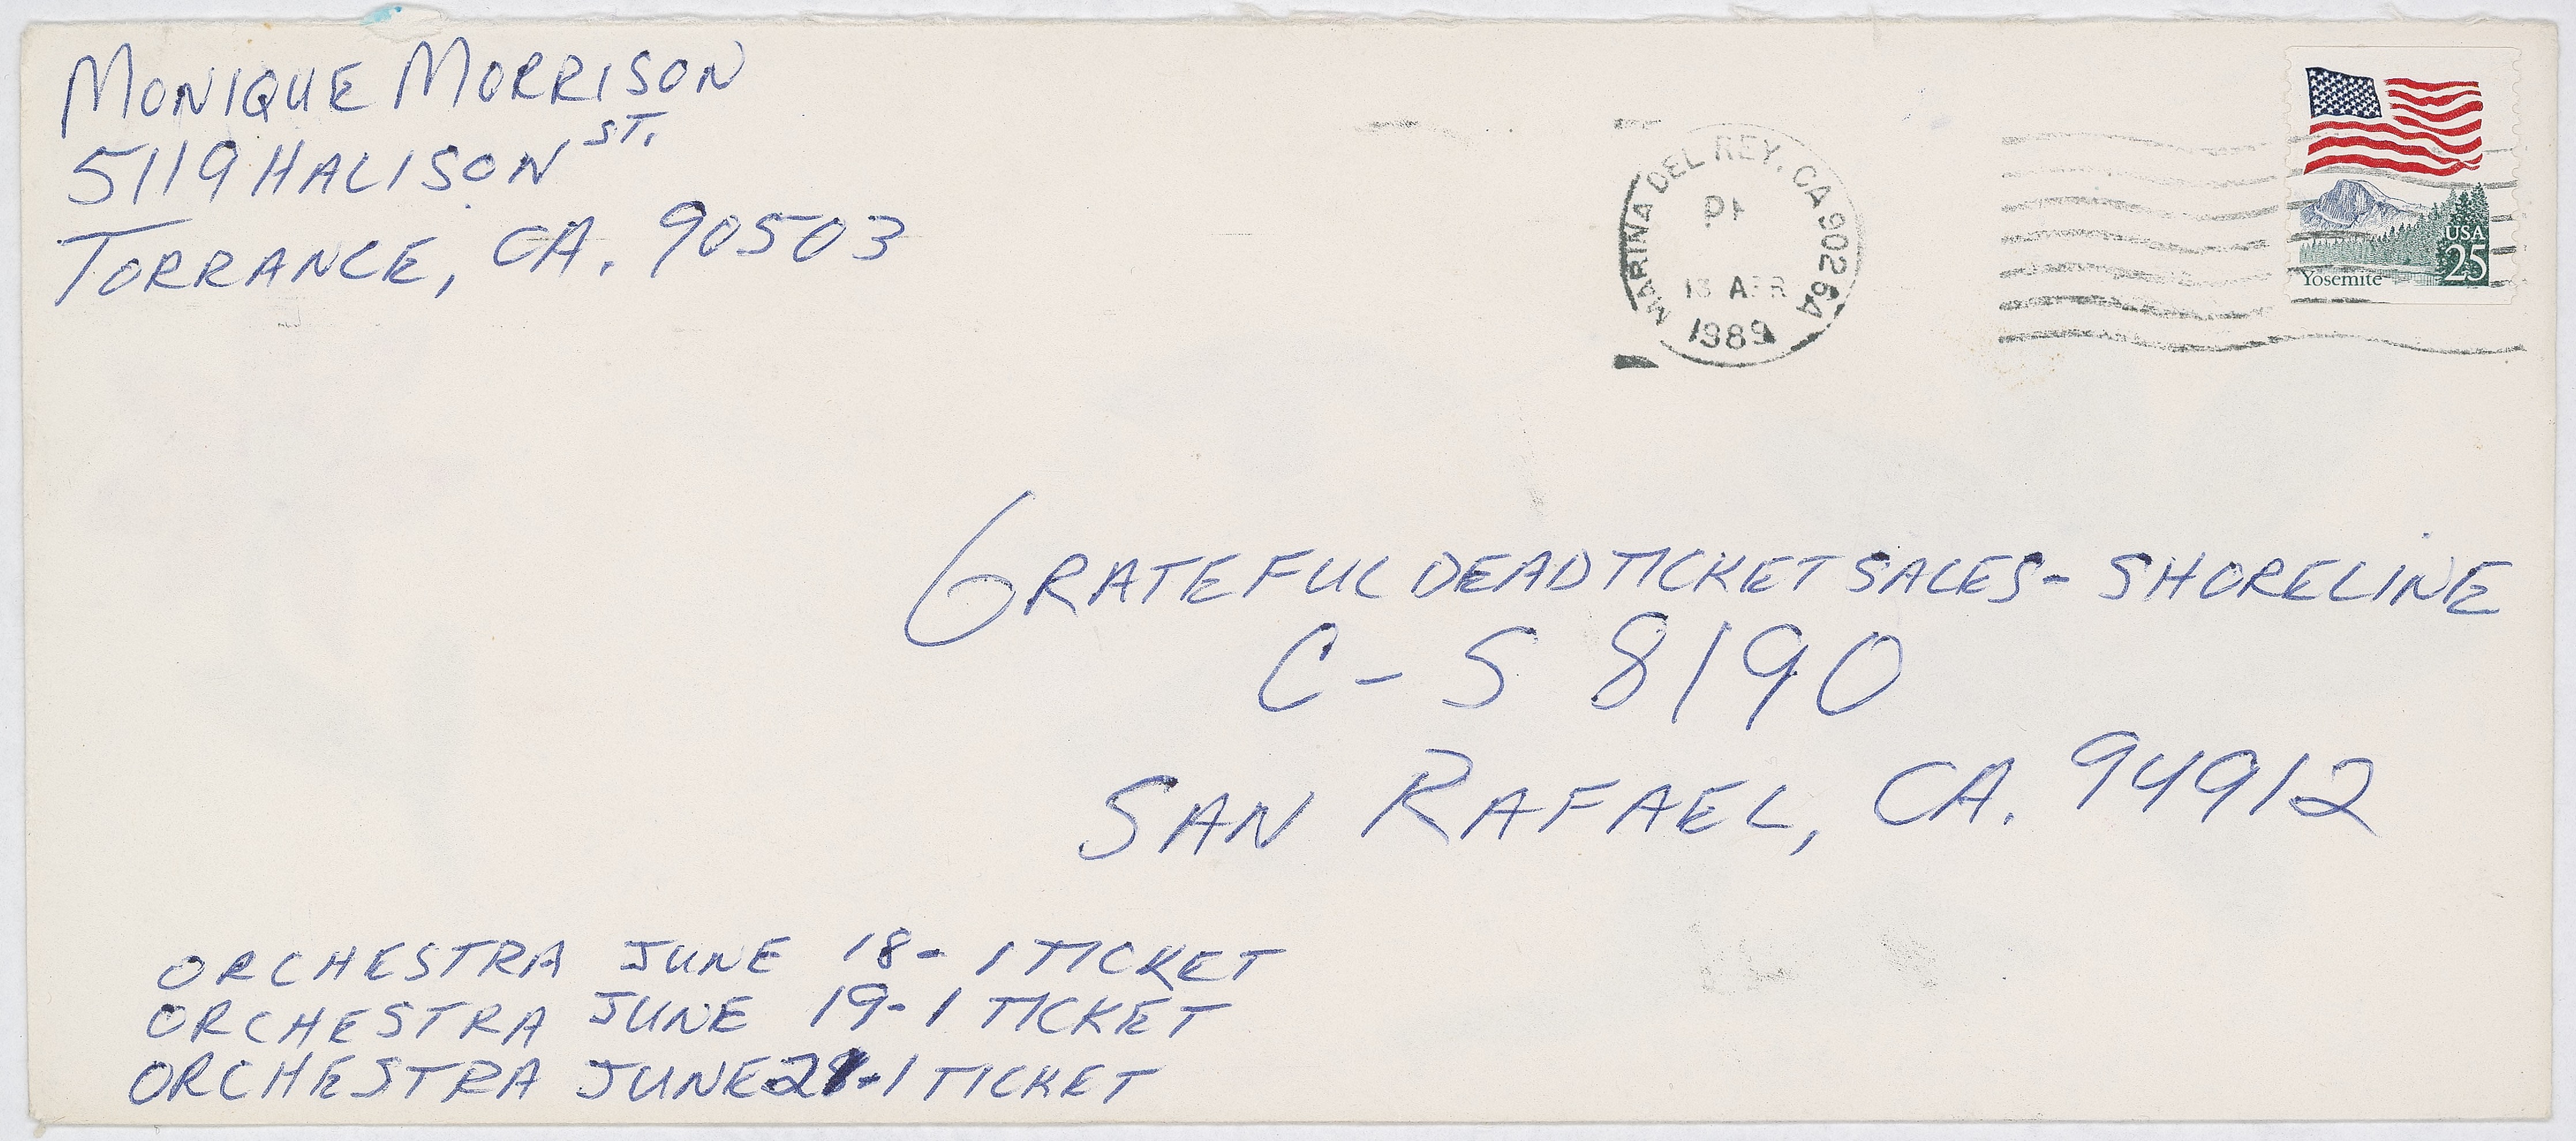 MONIQUE MORRISON
5119 HALISON ST.
TORRANCE, CA. 90503
MARINA DEL REY, CA 90264
13 APR
1989
USA
25
Yosemite
GRATEFUL DEAD TICKET SALES - SHORELINE
C - S 8190
SAN RAFAEL, CA. 94912
ORCHESTRA JUNE 18 - 1 TICKET
ORCHESTRA JUNE 19 - 1 TICKET
ORCHESTRA JUNE 21 - 1 TICKET